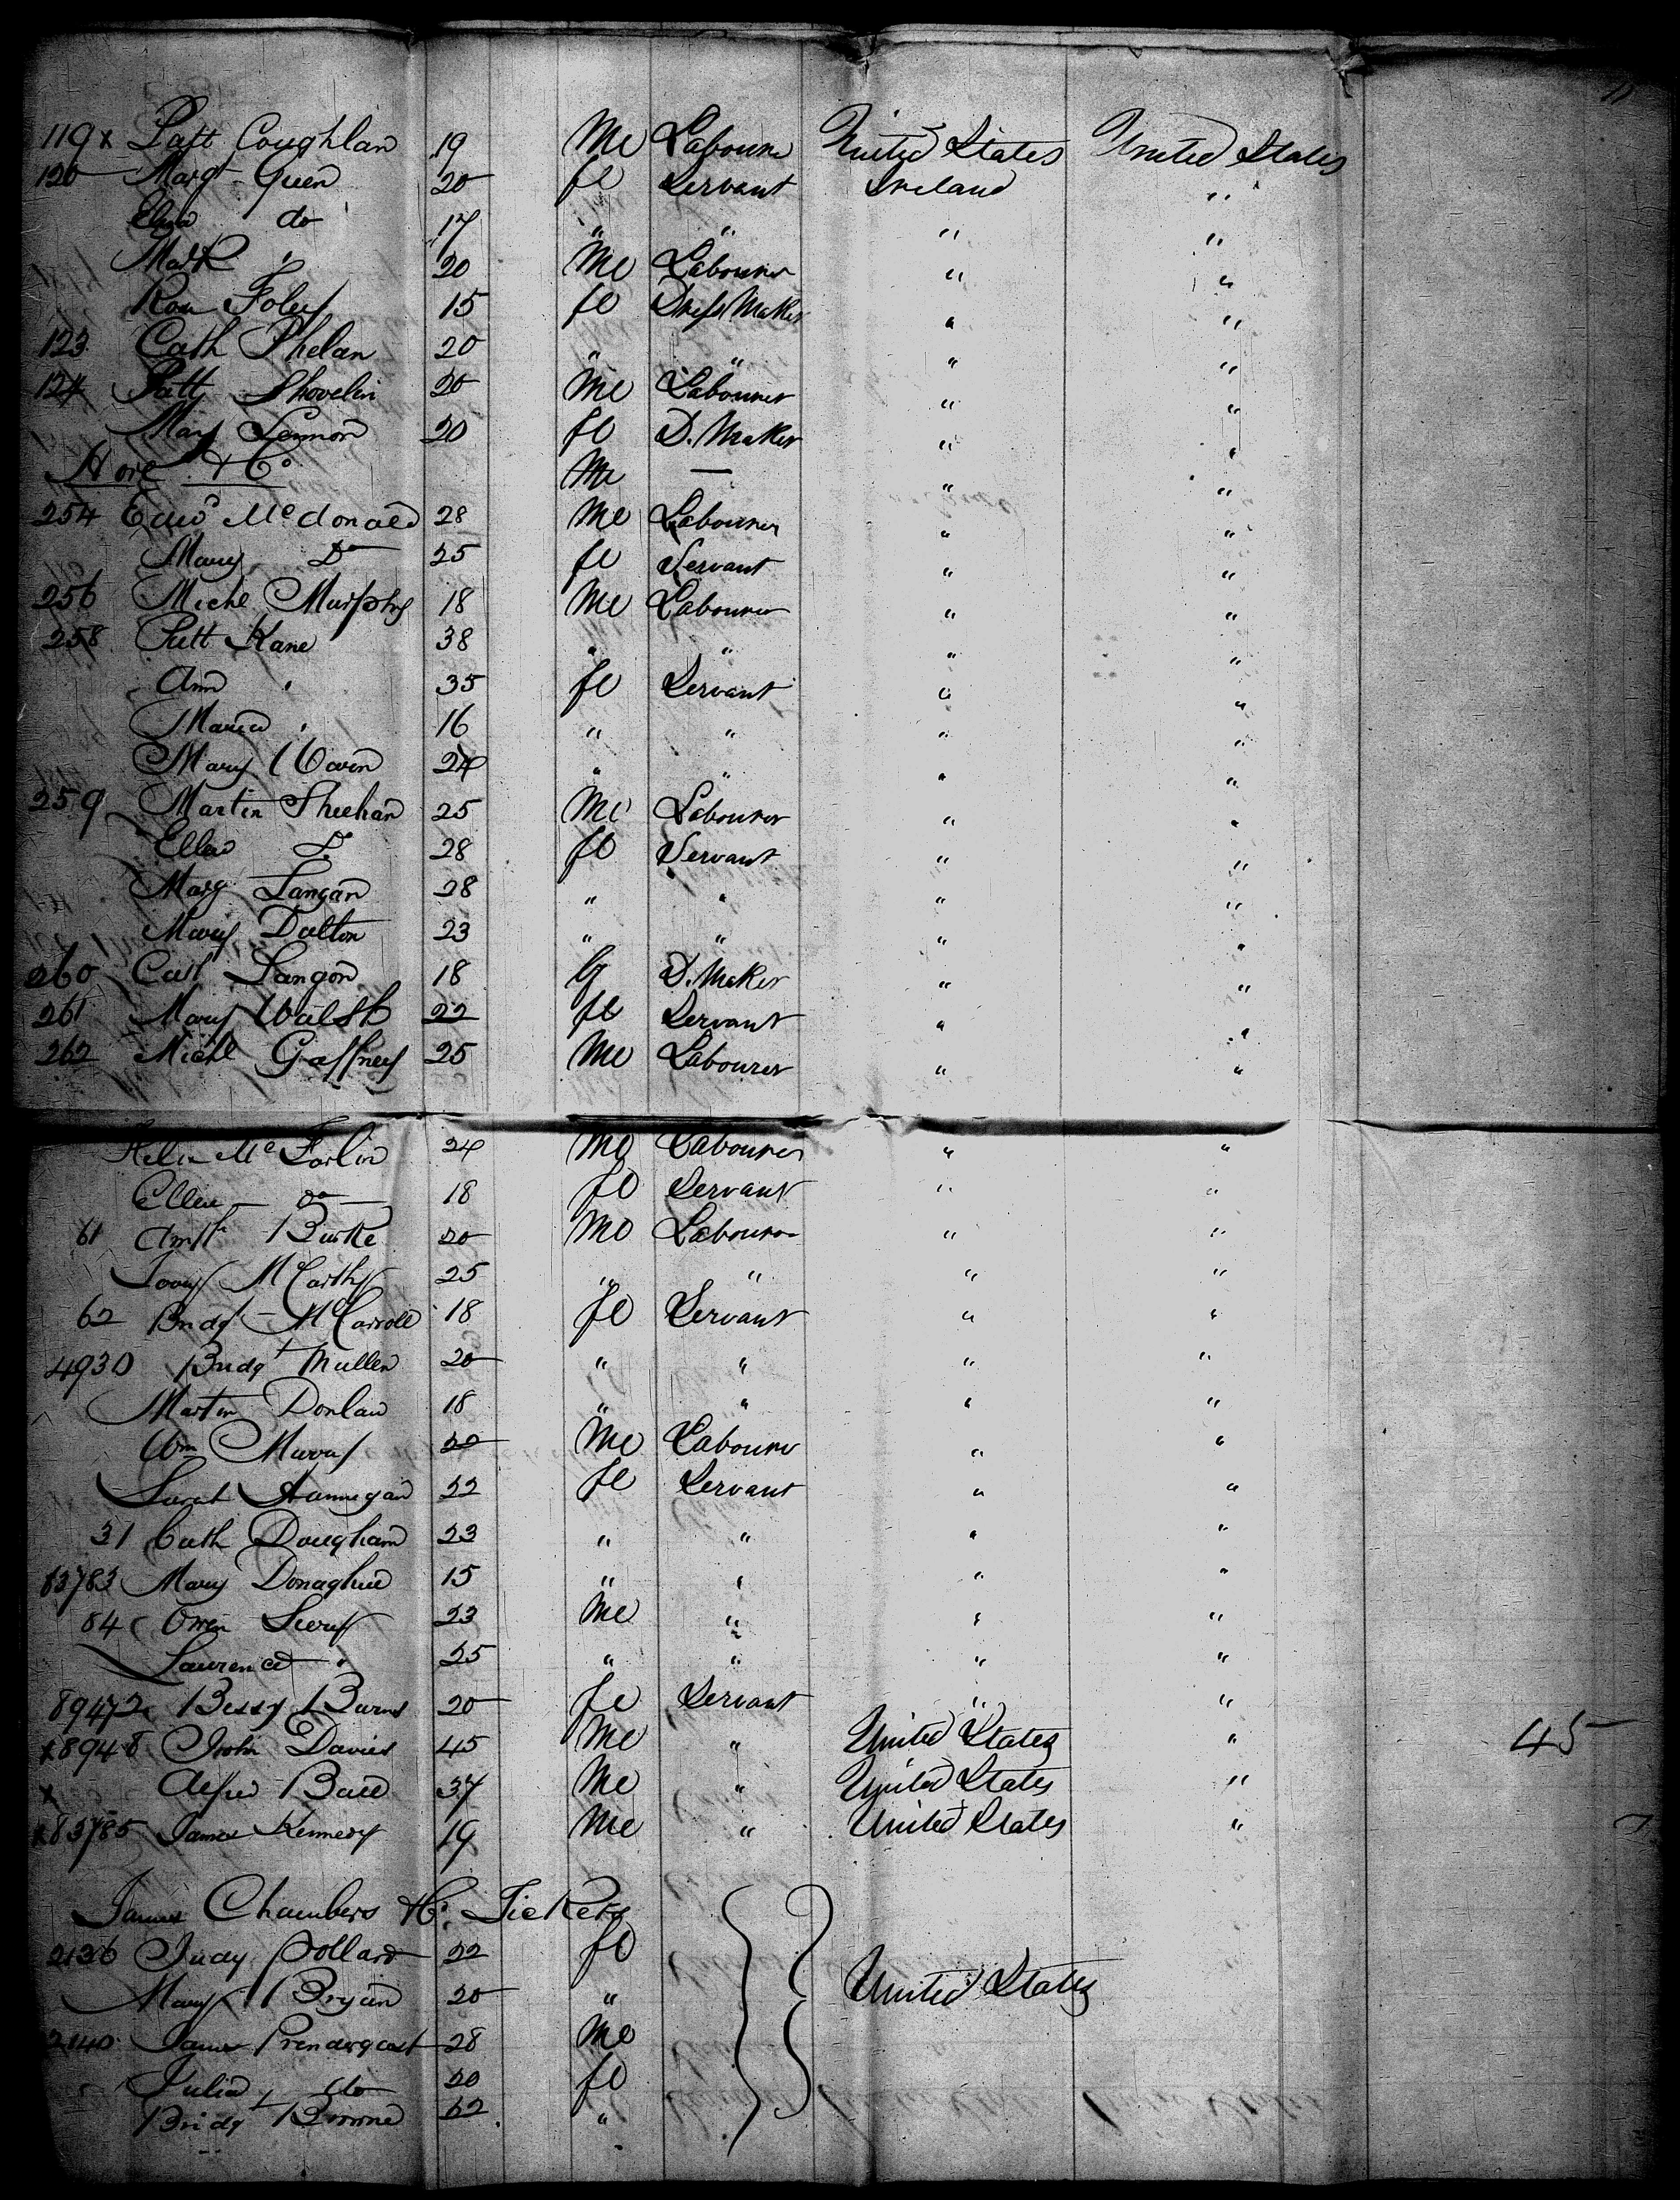 119 x Patt Coughlan 19 Me Labourer United States United States
120 Margt Queen 20 fe Servant Ireland "
Eliza do 17 " " " "
Mark " 20 Me Labourer " "
Rose Foley 15 fe Dress Maker " "
123 Cath Phelan 20 " " " "
124 Patt Shovelin 20 Me Labourer " "
Mary Lennon 20 fe D. Maker " "
Hore & Co Me — " "
254 Edwd McDonald 28 Me Labourer " "
Mary Do 25 fe Servant " "
256 Michl Murphy 18 Me Labourer " "
258 Patt Kane 38 " " " "
Ann " 35 fe Servant " "
Maria " 16 " " " "
Mary 24 " " " "
259 Martin Sheehan 25 Me Labourer " "
Ellen D 28 fe Servant " "
Marg Langan 28 " " " "
Mary Dalton 23 " " " "
260 Cath Langon 18 D. Maker " "
261 Mary Walsh 22 fe Servant " "
262 Michl Gaffney 25 Me Labourer " "
McFarlin 24 Me Labourer " "
Ellen do 18 fe Servant " "
61 Burke 20 Me Labourer " "
McCarthy 25 " " " "
62 Bridgt McCarroll 18 fe Servant " "
4930 Bridgt Mullen 20 " " " "
Martin Donlan 18 " " " "
Wm Murray 22 Me Labourer " "
Sarah Hannegan 22 fe Servant " "
31 Cath Dougham 23 " " " "
83783 Mary Donaghue 15 " " " "
84 Owen 23 Me " " "
Laurence " 25 " " " "
89472 Bessy Burns 20 fe Servant " "
x 8948 John Davies 45 Me " United States " 45
x Alfred Ball 37 Me " United States "
x 83785 James Kennedy 19 Me " United States "
James Chambers & Co. Tickets
2136 Judy Pollard 22 fe
Mary Bryan 20 " United States
2140 James Prendergast 28 Me
Julia do 20 fe
Bridgt Browne 62 "